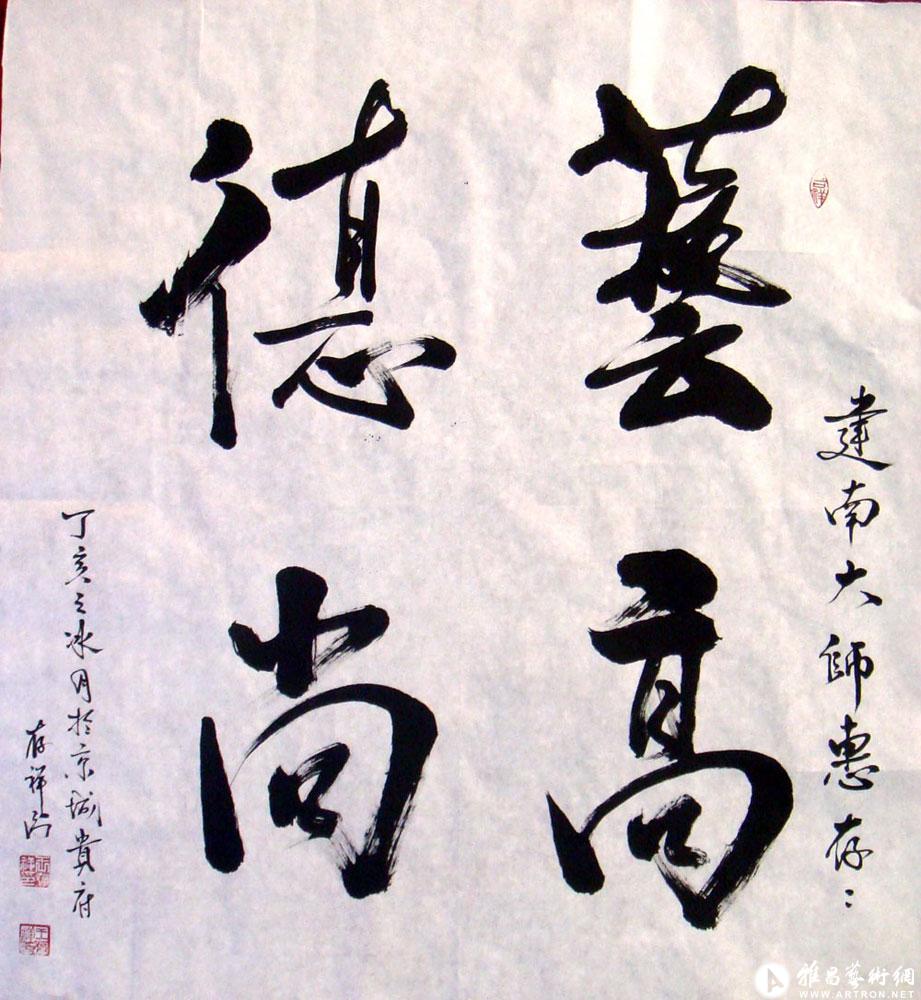 建南大師惠存:
藝高
德尚
丁亥之冰月於京城貴府
存祥
雅昌藝術網
WWW.ARTRON.NET